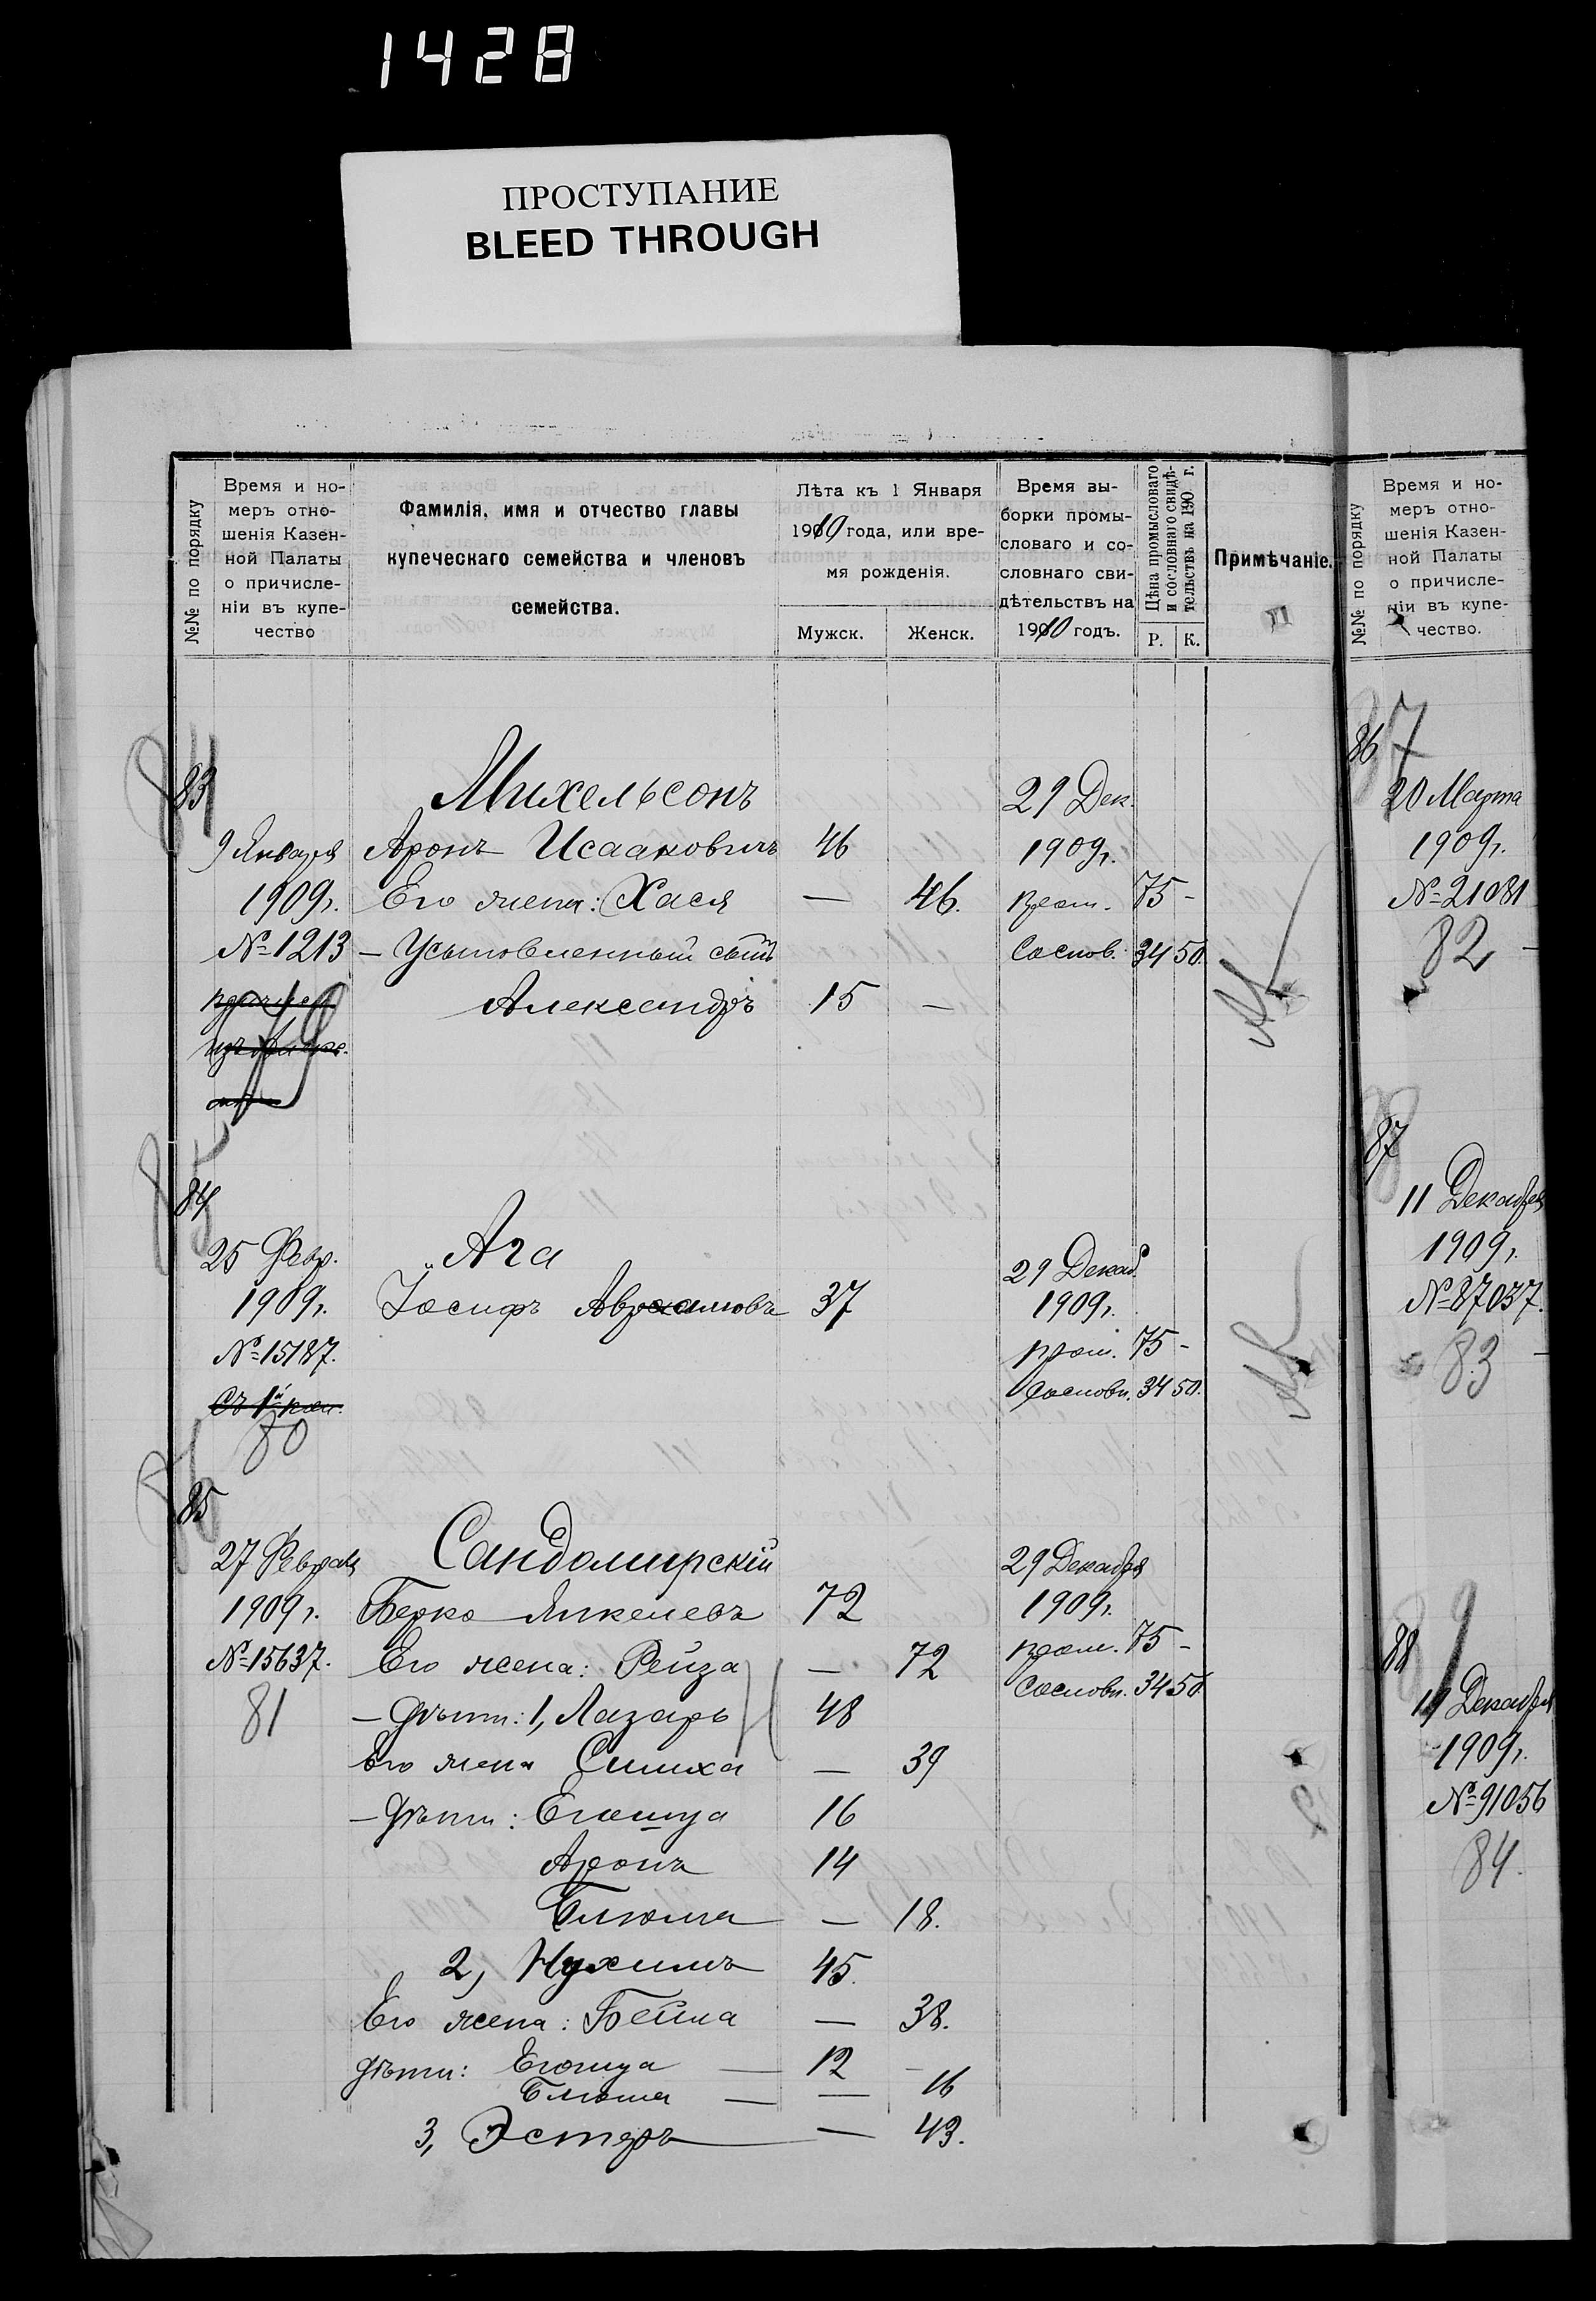 1428
ПРОСТУПАНИЕ
BLEED THROUGH
№№ по порядку
Время и но-
меръ отно-
шенія Казен-
ной Палаты
о причисле-
ніи въ купе-
чество
Фамилія, имя и отчество главы
купеческаго семейства и членовъ
семейства.
Лѣта къ 1 Января
1910 года, или вре-
мя рожденія.
Мужск.
Женск.
Время вы-
борки промы-
словаго и со-
словнаго сви-
дѣтельствъ на
1910 годъ.
Цѣна промысловаго
и сословнаго свидѣ-
тельствъ на 190 г.
Р.
К.
Примѣчаніе.
84
83
Михельсонъ
29 Дек.
9 Января
Аронъ Исааковичъ
46
1909г.
1909г.
Его жена: Хася
—
46.
пром. 75 -
№ 1213
— Усыновленный сынъ
Сослов. 34 50.
Александръ
15
—
79
85
84
25 Февр.
Ага
29 Декаб.
1909г.
Іосифъ Аврамовъ
37
1909г.
№ 15187.
пром. 75 -
Съ 1й
Сословн. 34 50.
80
86
85
27 Февраля
Сандомирскій
29 Декабря
1909г.
Берко Янкелевъ
72
1909г.
№ 15637.
Его жена: Рейза
—
72
пром. 75 -
81
Сословн. 34 50
— Дѣти: 1, Лазарь
48
Его жена Симха
—
39
— Дѣти: Егошуа
16
Аронъ
14
Блюма
—
18.
2, Нухимъ
45.
Его жена: Бейла
—
38.
Дѣти: Егошуа —
12
—
Блюма —
—
16
3, Эстеръ
—
43.
№№ по порядку
Время и но-
меръ отно-
шенія Казен-
ной Палаты
о причисле-
ніи въ купе-
чество.
87
86
20 Марта
1909г.
№ 21081
82 -
88
87
11 Декабря
1909г.
№ 87037.
83 -
89
88
19 Декабря
1909г.
№ 91056
84.